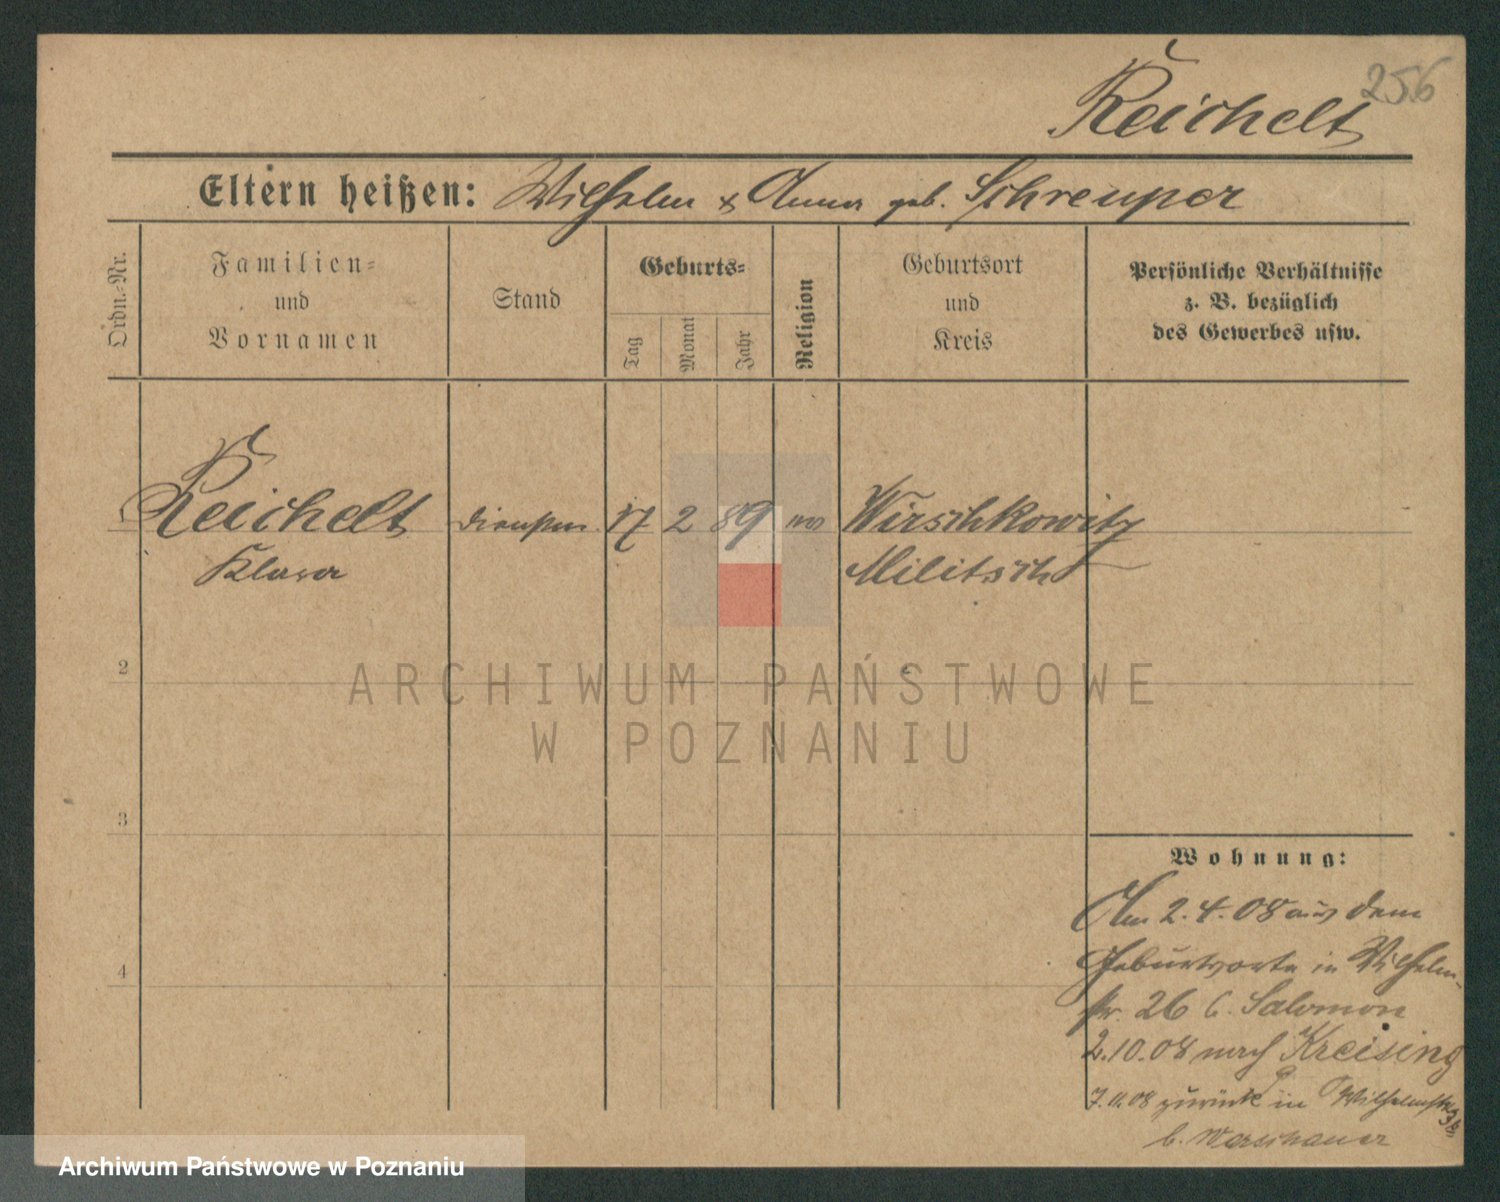 256
Reichelt
Eltern heißen: Wilhelm & Anna geb. Schreuper
Ordn.-Nr.
Familien-
und
Vornamen
Stand
Geburts-
Tag
Monat
Jahr
Religion
Geburtsort
und
Kreis
Persönliche Verhältnisse
z. B. bezüglich
des Gewerbes usw.
1 Reichelt 17 2 89 Wirschkowitz
Klara Militsch
2
3
4
ARCHIWUM PAŃSTWOWE
W POZNANIU
Wohnung:
Am 2.4.08 aus dem
Geburtsorte in Wilhelm-
str. 26 b. Salomon
2.10.08 nach Kreising
7.11.08 zurück in Wilhelmstr
b. Warschauer
Archiwum Państwowe w Poznaniu